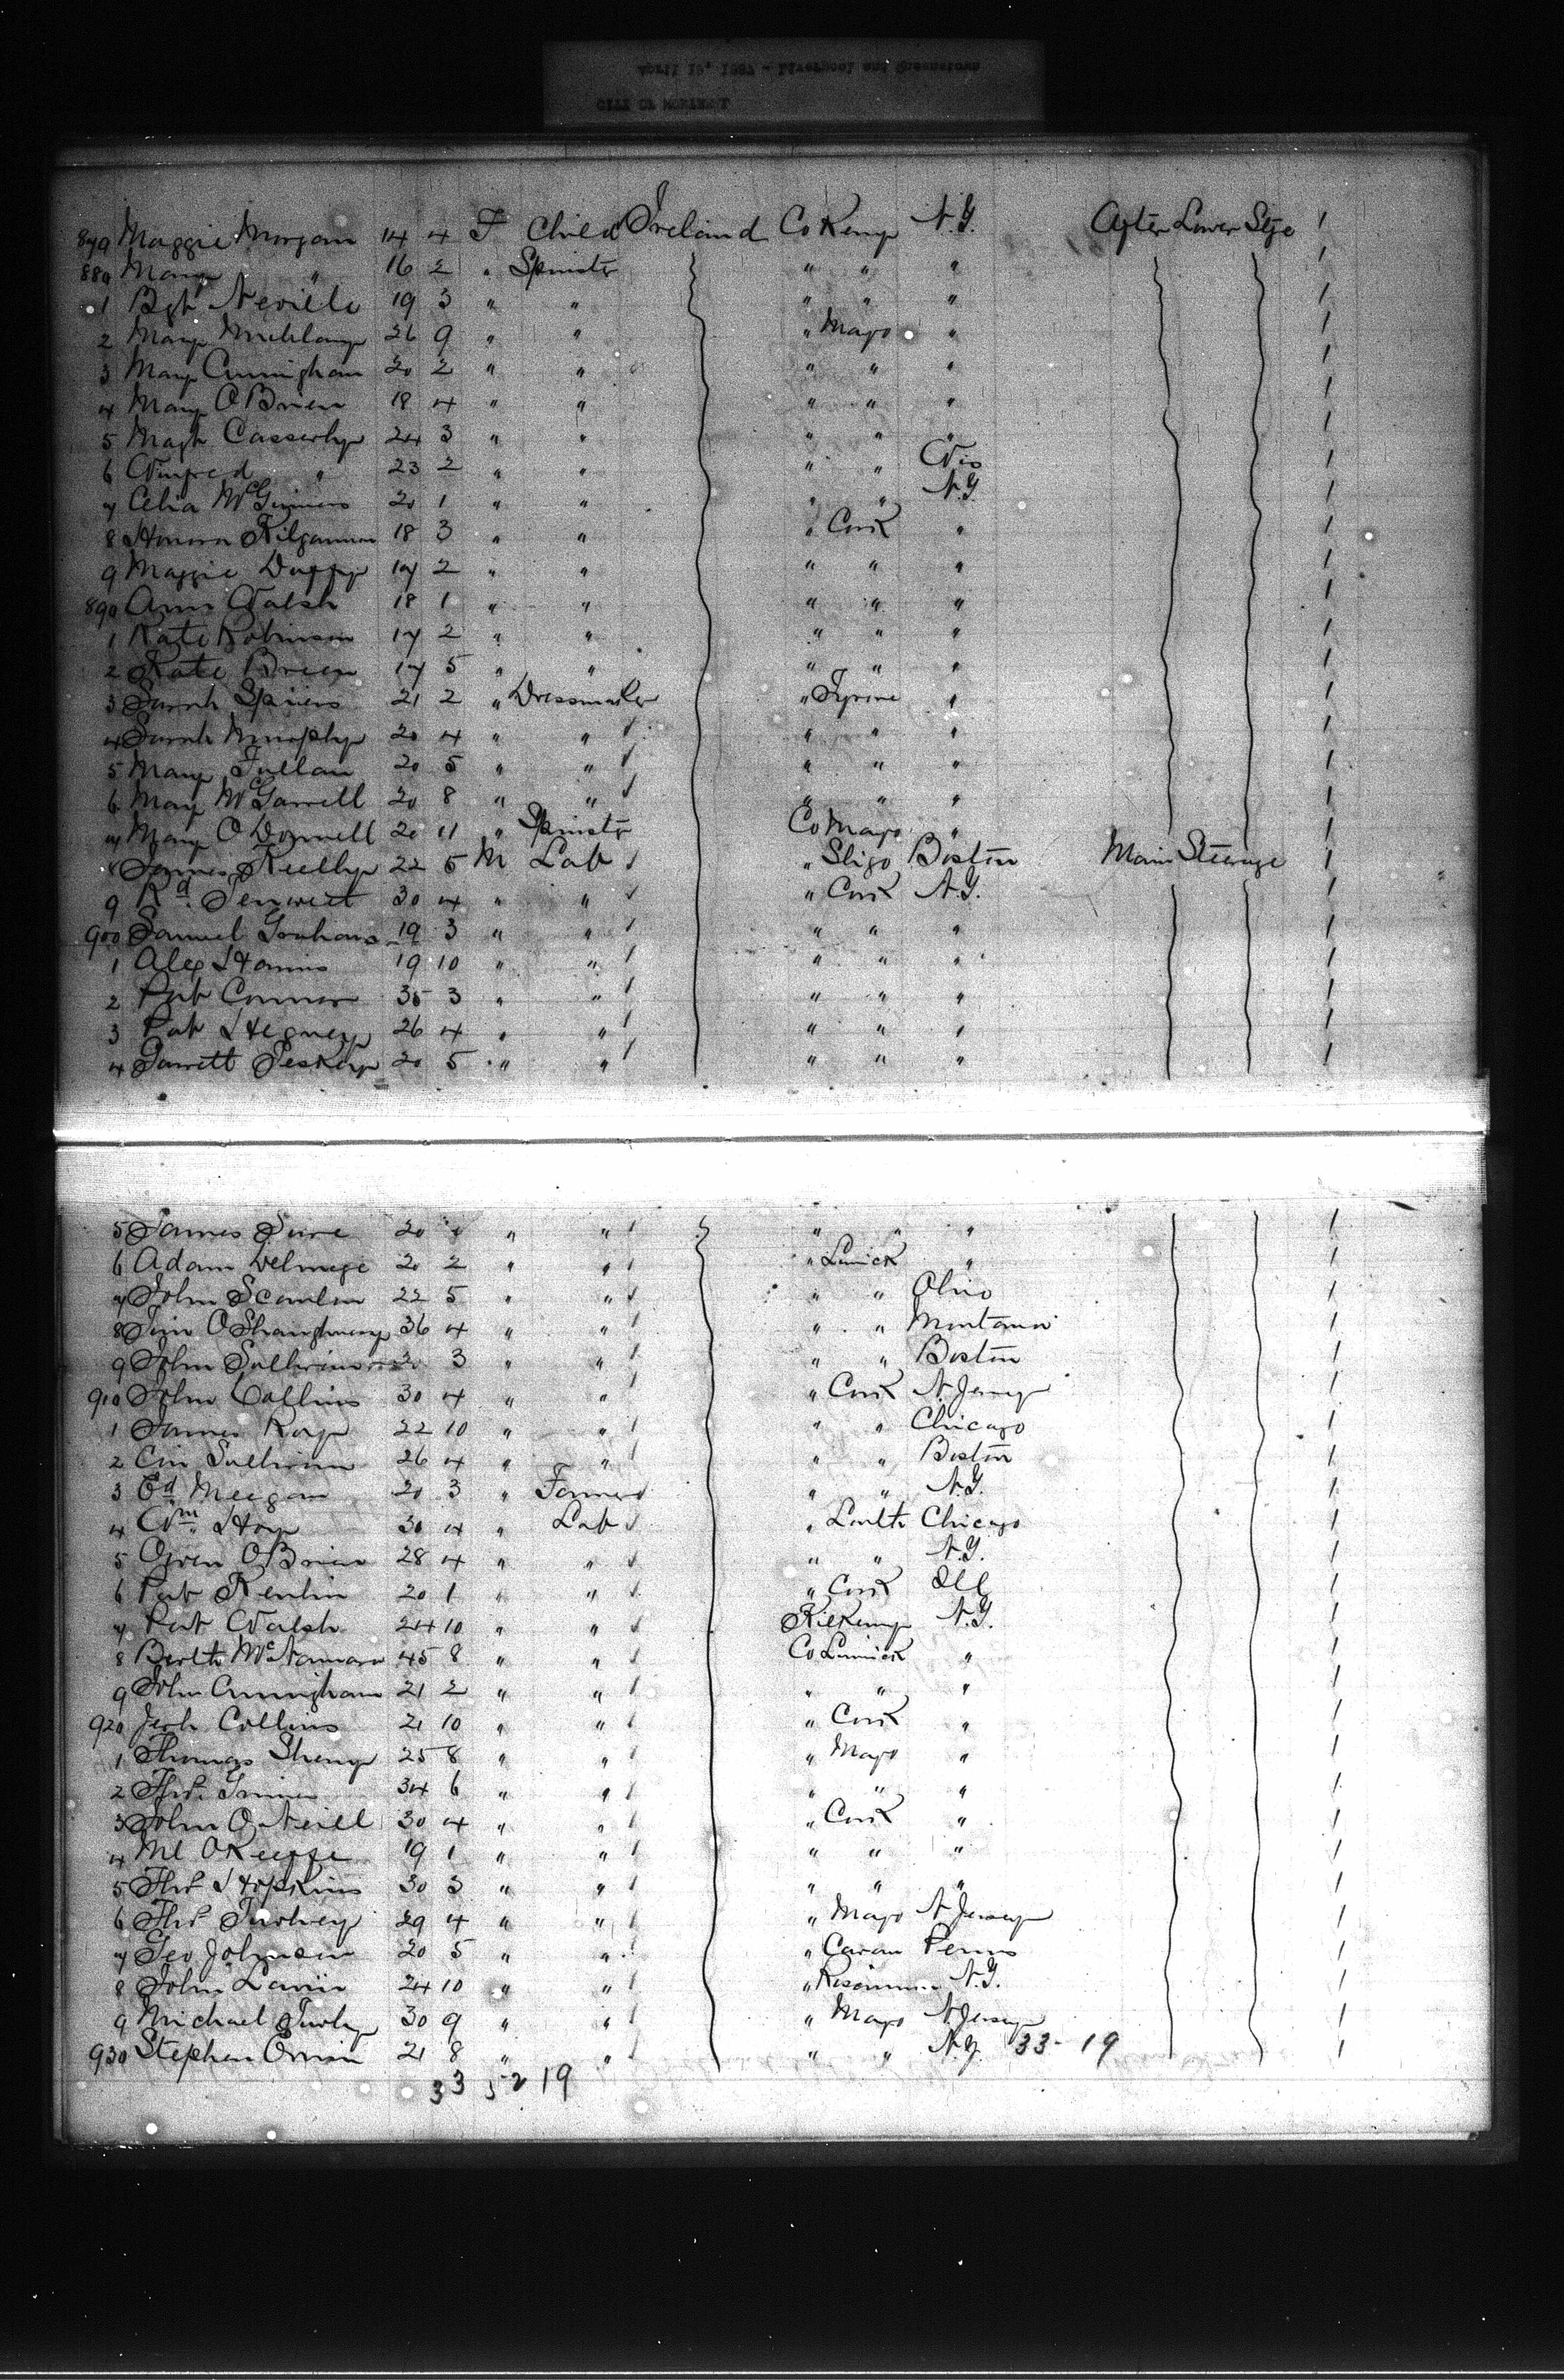 April 19, 1887 - Liverpool and Queenstown
CITY OF
879 Maggie Morgan 14 4 F Child Ireland Co Kerry N.Y. After Lower Stge 1
880 Mary " 16 2 " Spinster " " " 1
1 Bgt Neville 19 3 " " " " " 1
2 Mary 26 9 " " " Mayo " 1
3 Mary Cunningham 20 2 " " " " " 1
4 Mary O'Brien 18 4 " " " " " 1
5 Magt Casserly 24 3 " " " " " 1
6 Winfred " 23 2 " " " " Wis 1
7 Celia McGinniss 20 1 " " " " N.Y. 1
8 Honora Kilgannon 18 3 " " " Cork " 1
9 Maggie Duffy 17 2 " " " " " 1
890 Ann Walsh 18 1 " " " " " 1
1 Kate Robinson 17 2 " " " " " 1
2 Kate Breen 17 5 " " " " " 1
3 Sarah Spiers 21 2 " Dressmaker " Tyrone " 1
4 Sarah Murphy 20 4 " " " " " 1
5 Mary Fullan 20 5 " " " " " 1
6 Mary McGarrell 20 8 " " " " " 1
7 Mary O'Donnell 20 11 " Spinster Co Mayo " 1
8 James Kielly 22 5 M Lab " Sligo Boston Main Steerage 1
9 Rd. 30 4 " " " Cork N.Y. 1
900 Samuel Graham 19 3 " " " " " 1
1 Alex Harris 19 10 " " " " " 1
2 Pat Connor 35 3 " " " " " 1
3 Pat Hegney 26 4 " " " " " 1
4 Garrett Peskey 20 5 " " " " " 1
5 James 20 " " " " " 1
6 Adam Delmege 20 2 " " " Limick " 1
7 John Scanlon 22 5 " " " " Ohio 1
8 Tim O'Shaughnessy 36 4 " " " " Montana 1
9 John Sullivan 20 3 " " " " Boston 1
910 John Collins 30 4 " " " Cork N. Jersey 1
1 James Roy 22 10 " " " " Chicago 1
2 Cin Sullivan 26 4 " " " " Boston 1
3 Ed Meegan 20 3 " Farmer " " N.Y. 1
4 Wm. Hoy 30 4 " Lab " Louth Chicago 1
5 Owen O'Brien 28 4 " " " " N.Y. 1
6 Pat Kenlin 20 1 " " " Cork Ill 1
7 Pat Walsh 24 10 " " Kilkenny N.Y. 1
8 Barth McNamara 45 8 " " Co Limick " 1
9 John Cunningham 21 2 " " " " " 1
920 Jerh Collins 21 10 " " " Cork " 1
1 Thomas Sheny 25 8 " " " Mayo " 1
2 Thos. 34 6 " " " " " 1
3 John O'Neill 30 4 " " " Cork " 1
4 Ml O'Keeffe 19 1 " " " " " 1
5 Thos Hopkins 30 3 " " " " " 1
6 Thos 29 4 " " " Mayo N Jersey 1
7 Geo Johnson 20 5 " " " Cavan Penns 1
8 John Lavin 24 10 " " " Roscommon N.Y. 1
9 Michael 30 9 " " " Mayo N Jersey 1
930 Stephen 21 8 " " " " N.Y. 33-19 1
33 52 19